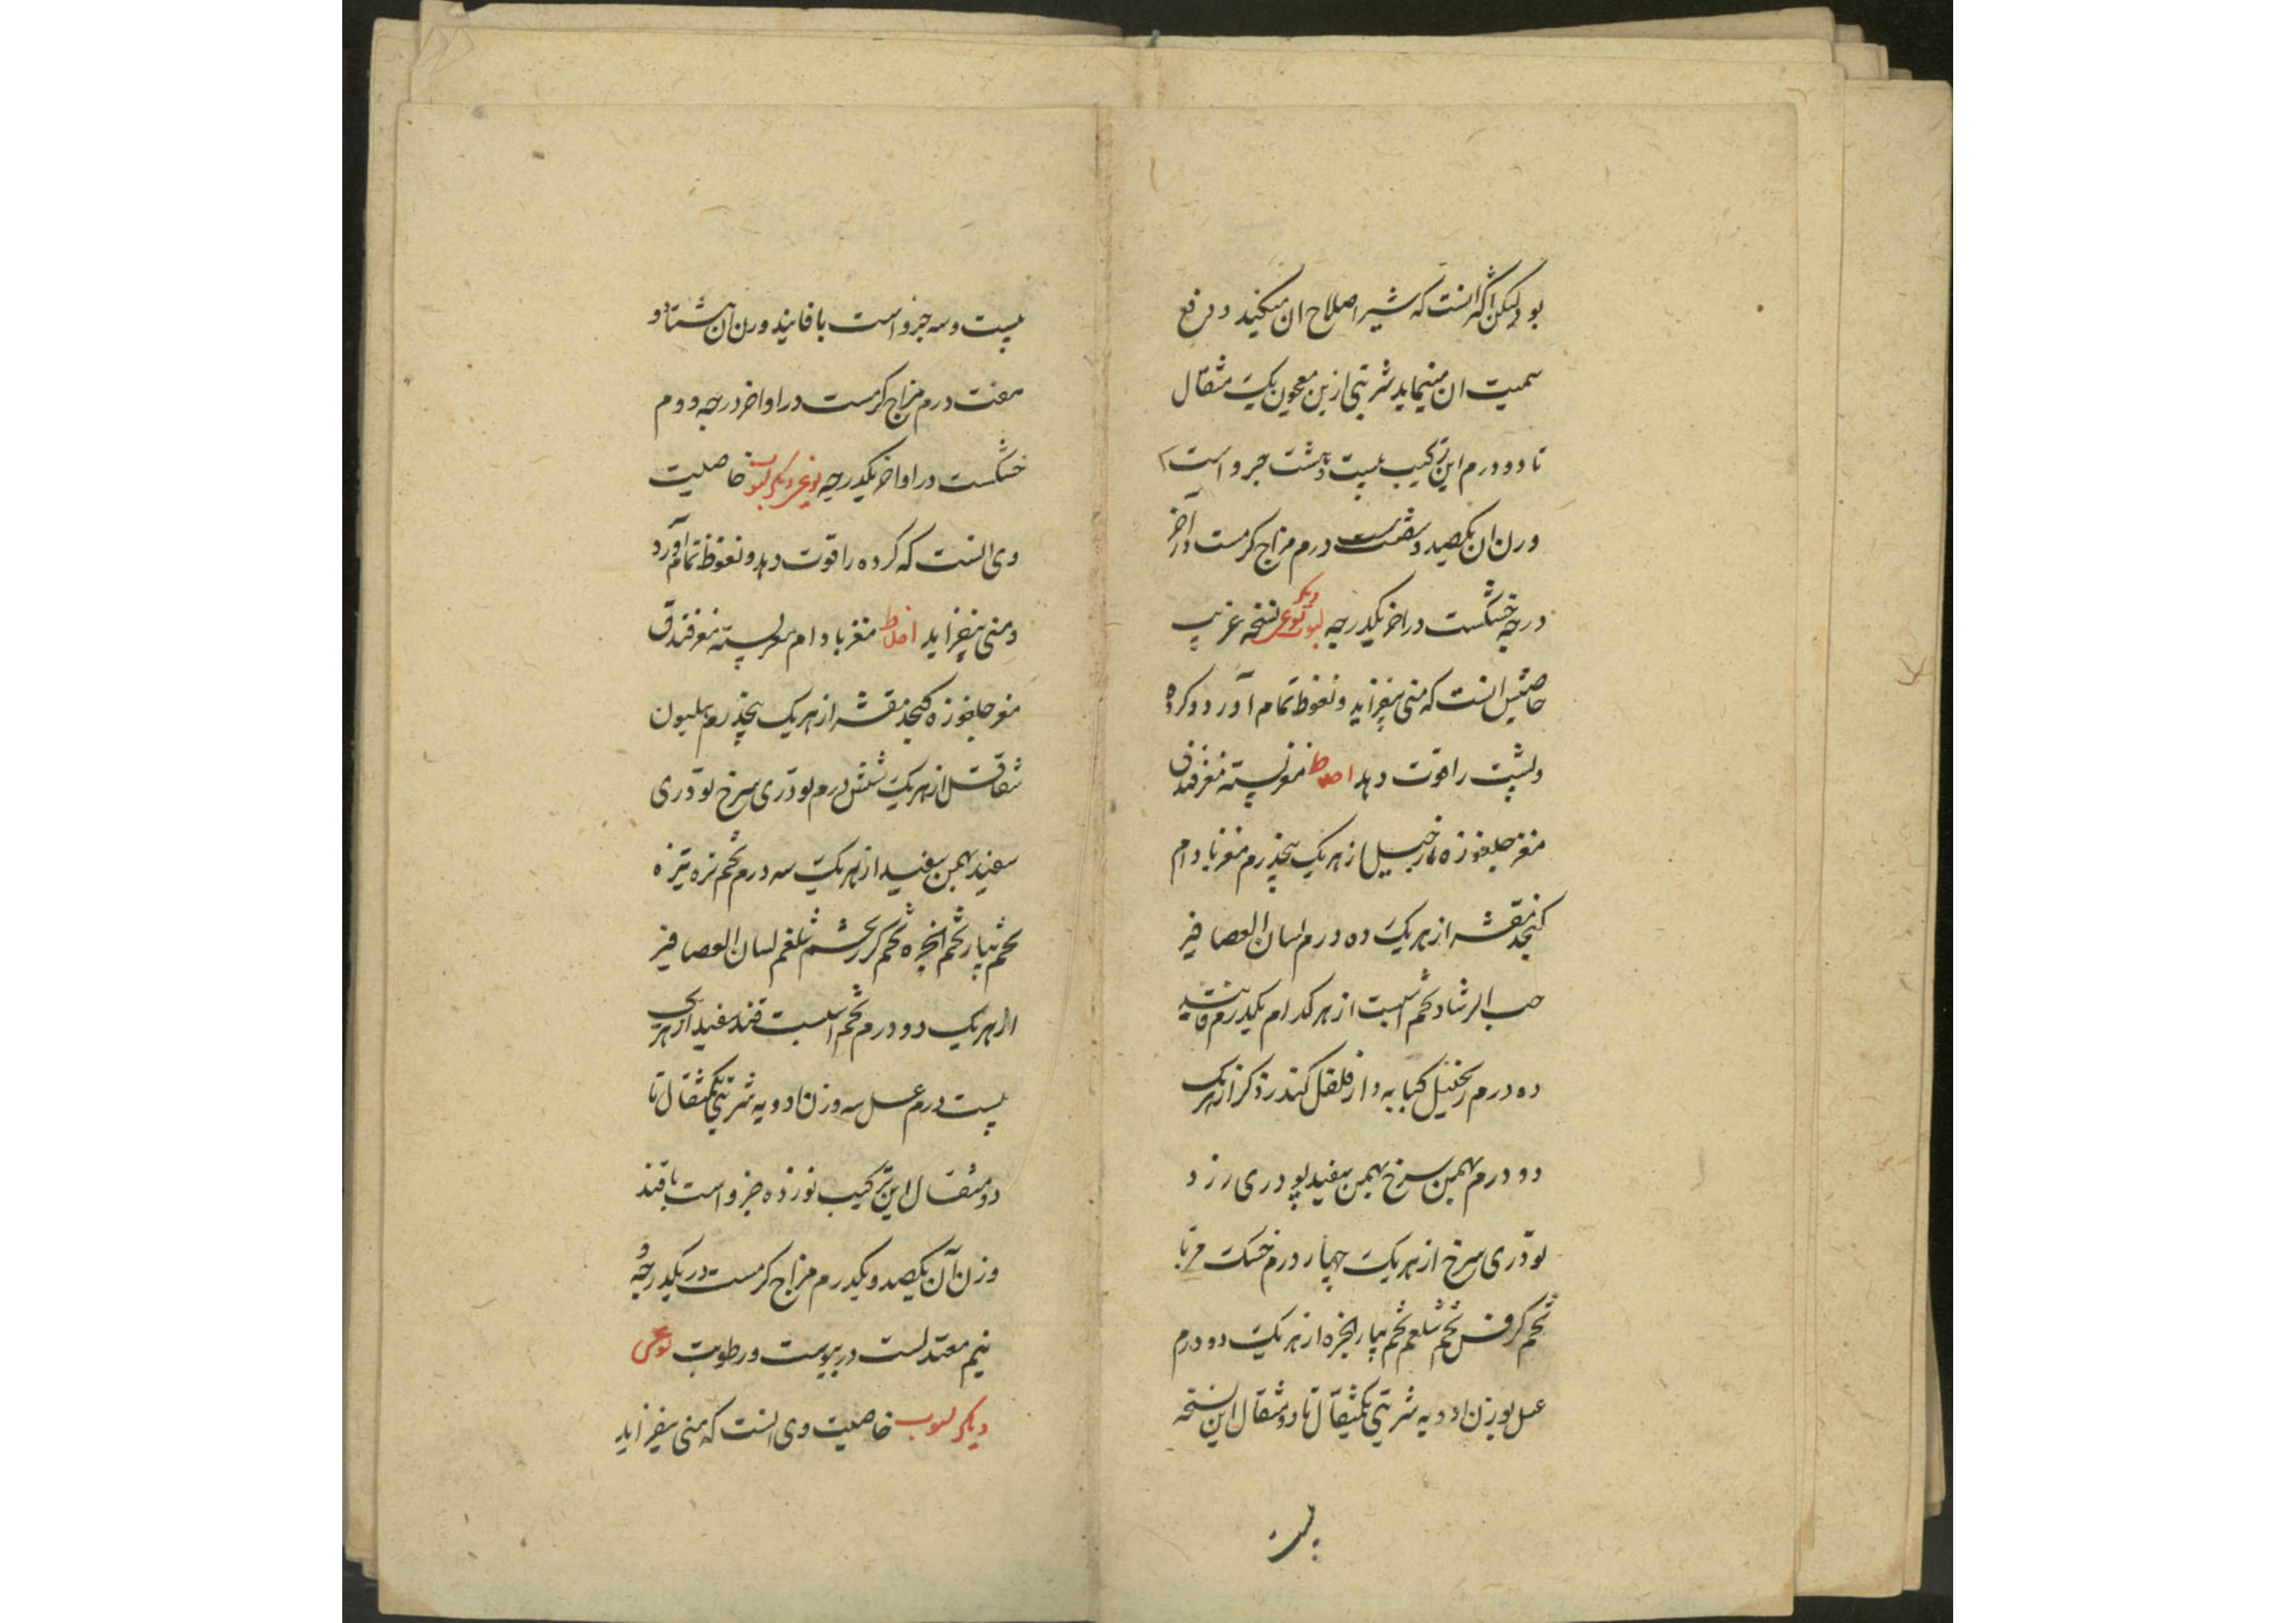 بود لیکن اکثر انست که شیر اصلاح ان میکند و دفع
سمیت ان مینماید شربتی ازین معجون یک مثقال
تا دو درم این ترکیب بیست و هشت جزو است
وزن ان یکصد و شصت درم مزاج کرمست در آخر
درجه خشکست در اخر یکدرجه لبوب نوعی دیکر نسخه غریب
خاصیتش انست که منی بیفزاید و نعوظ تمام آورد و کرده
و پشت را قوت دهد اخلاط مغز پسته مغز فندق
مغز چلغوزه نارجیل از هر یک پنجدرم مغز بادام
کنجد مقشر از هر یک ده درم لسان العصافیر
حب الرشاد تخم اسپست از هر کدام یکدرم فانید
ده درم زنجبیل کبابه دارفلفل کندر ذکر از هر یک
دو درم بهمن سرخ بهمن سفید تودری زرد
تودری سرخ از هر یک چهار درم خسک مربا
تخم کرفس تخم شلغم تخم پیاز انجره از هر یک دو درم
عسل بوزن ادویه شربتی یکمثقال تا دو مثقال این نسخه
بیست
بیست و سه جزو است با فانید وزن ان هشتاد و
هفت درم مزاج کرمست در اواخر درجه دوم
خشکست در اواخر یکدرجه نوعی دیکر لبوب خاصیت
وی انست که کرده را قوت دهد و نعوظ تمام آورد
و منی بیفزاید اخلاط مغز بادام مغز پسته مغز فندق
مغز چلغوزه کنجد مقشر از هر یک پنجدرم هلیون
شقاقل از هر یک شش درم تودری سرخ تودری
سفید بهمن سفید از هر یک سه درم تخم تره تیزه
تخم پیاز تخم انجره تخم کزر تخم شلغم لسان العصافیر
از هر یک دو درم تخم اسپست قند سفید از هر یک
بیست درم عسل سه وزن ادویه شربتی یکمثقال تا
دو مثقال این ترکیب نوزده جزو است با قند
وزن آن یکصد و یکدرم مزاج کرمست در یکدرجه و
نیم معتدلست در یبوست و رطوبت نوعی
دیکر لبوب خاصیت وی انست که منی بیفزاید